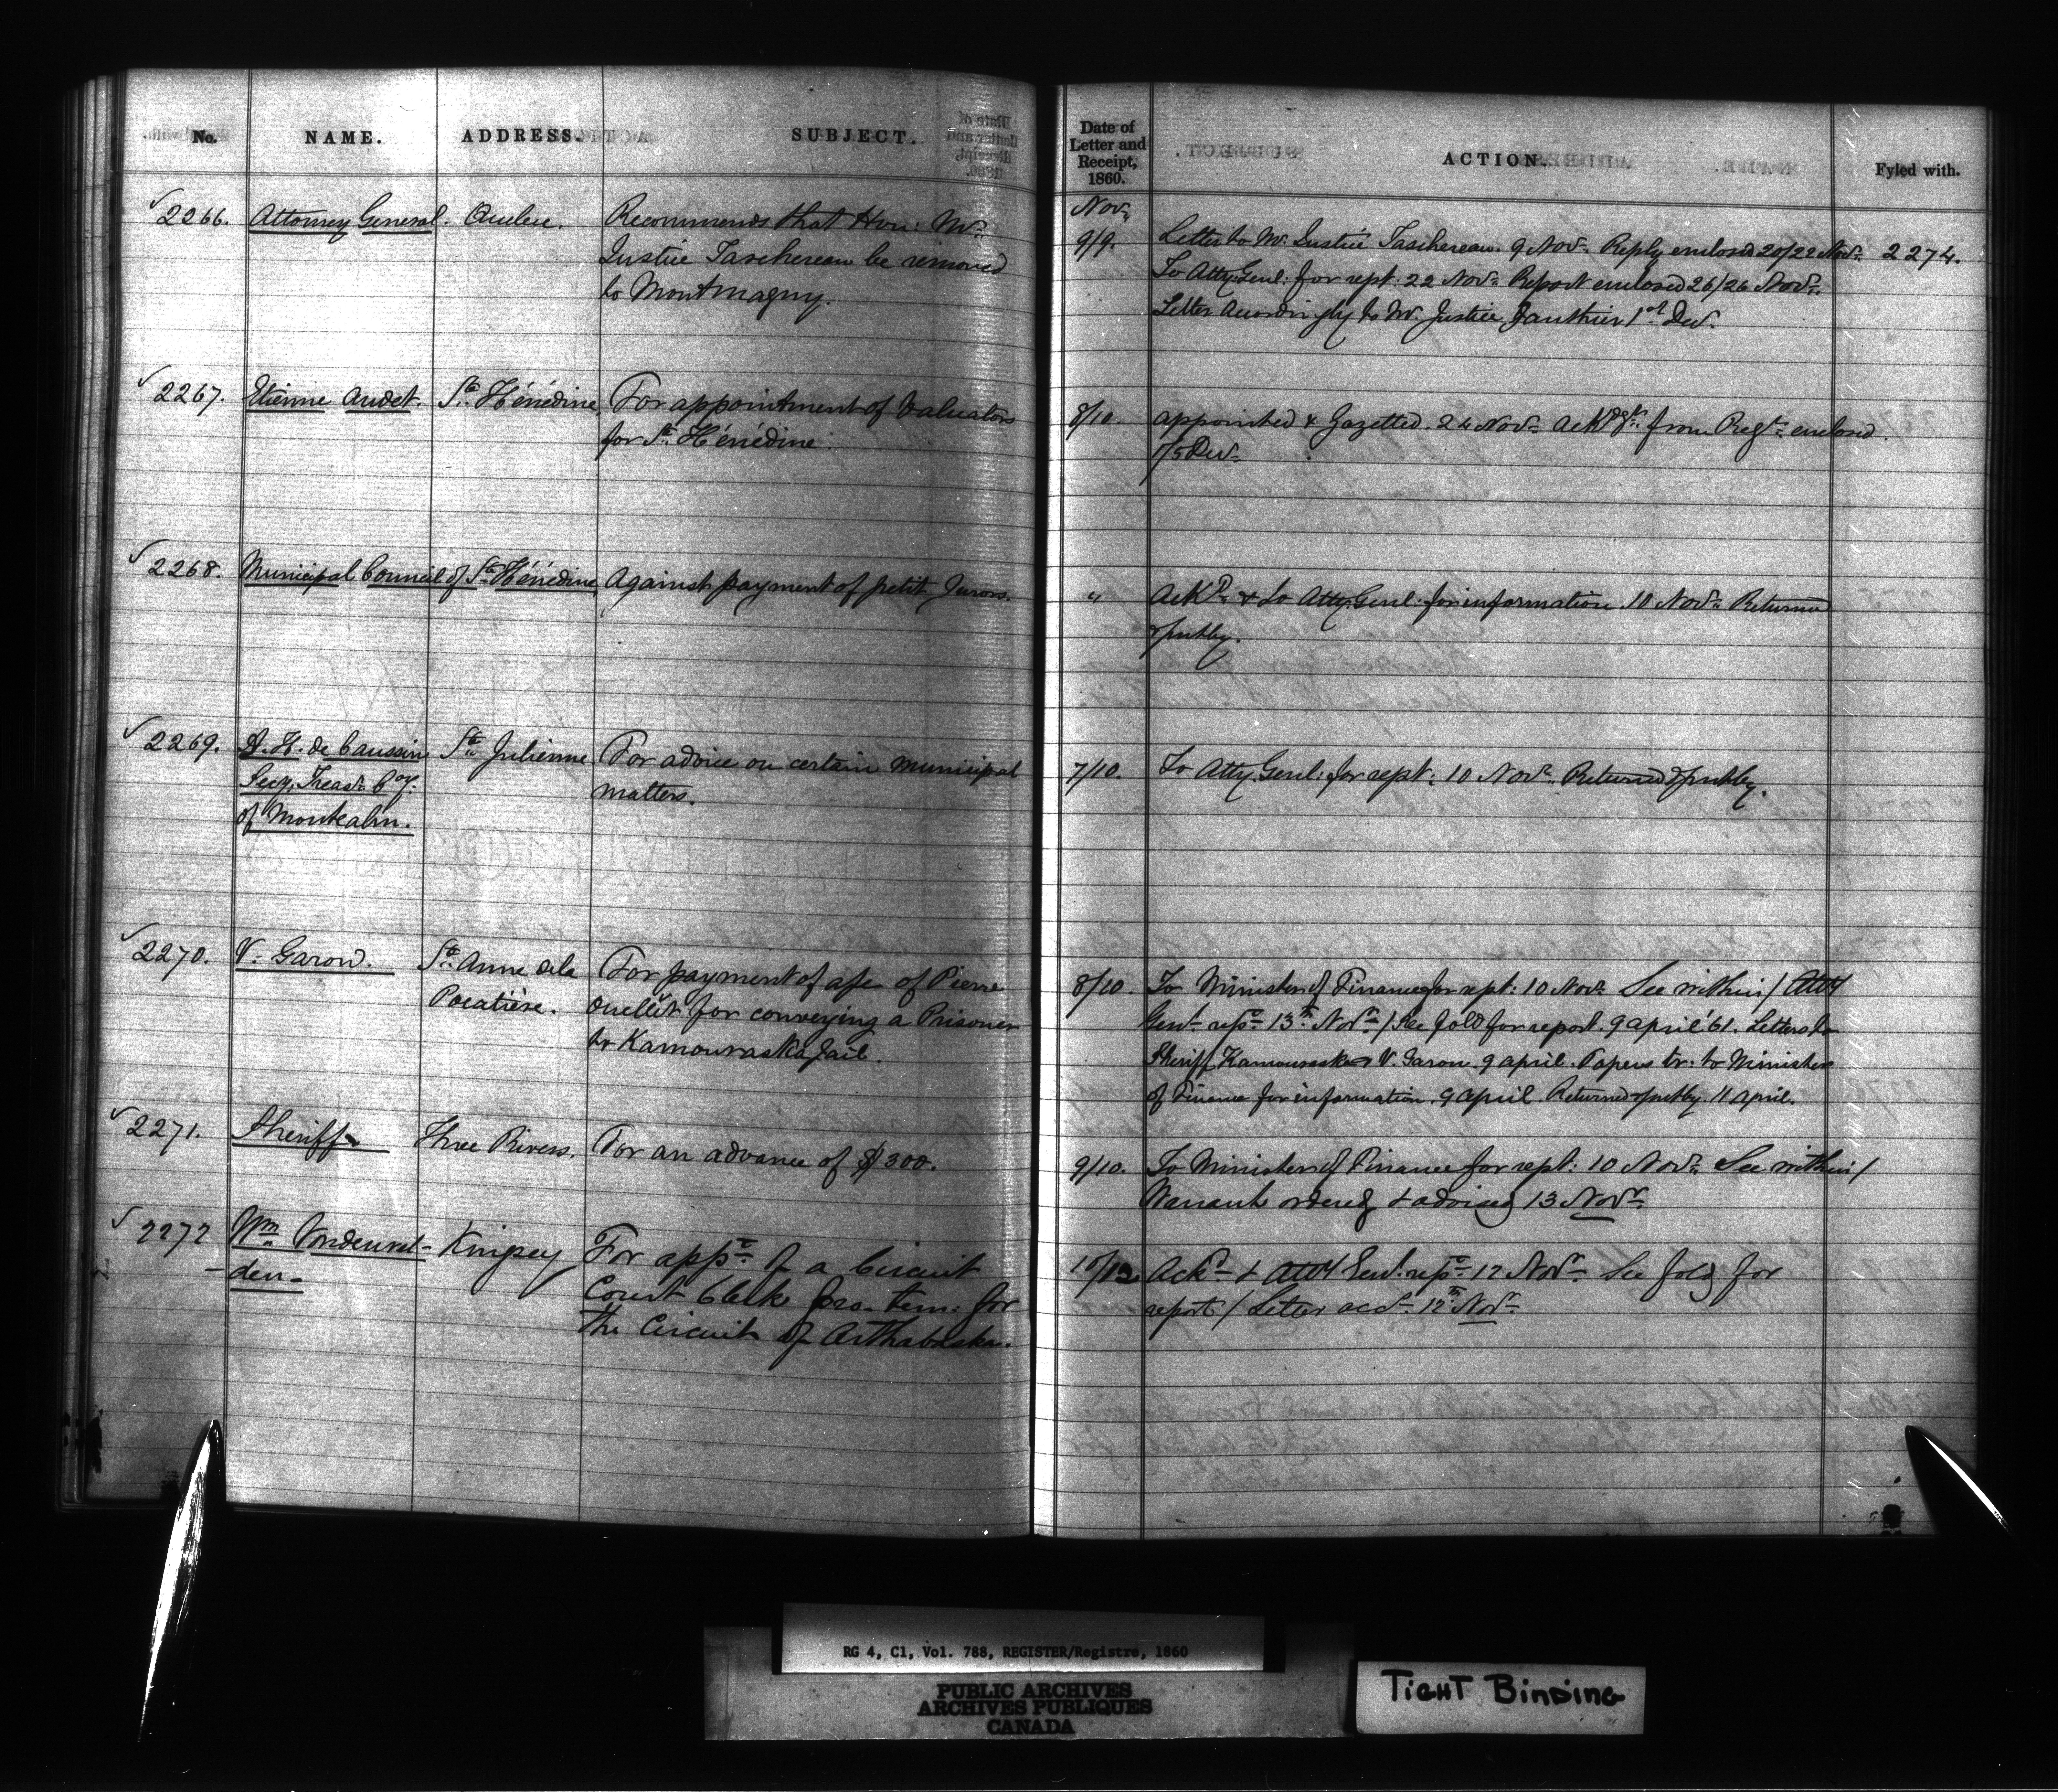 No. NAME. ADDRESS. SUBJECT.
✓ 2266. Attorney General. Quebec. Recommends that Hon: Mr.
Justice Taschereau be removed
to Montmagny.
✓ 2267. Etienne Audet. Ste. Hénédine, For appointment of Valuators
for Ste. Hénédine.
✓ 2268. Municipal Council of Ste. Hénédine, Against payment of petit Jurors.
✓ 2269. A. H. de Caussin Ste. Julienne For advice on certain municipal
Secy. Treasr. Coy. matters.
of Montcalm.
✓ 2270. V. Garon. Ste. Anne de la For payment of a/c of Pierre
Pocatière. Ouellet for conveying a Prisoner
to Kamouraska Jail.
✓ 2271. Sheriff Three Rivers. For an advance of $300.
✓ 2272 Wm. Vondenvel- Kingsey For appt. of a Circuit
-den- Court Clerk pro. tem: for
the Circuit of Arthabaska.
Date of
Letter and
Receipt,
1860. ACTION. Fyled with.
Novr.
9/9. Letter to Mr. Justice Taschereau. 9 Novr. Reply enclosed 20/22 Novr. 2274.
To Atty. Genl: for rept: 22 Novr. Report enclosed 26/26 Novr.
Letter accordingly to Mr. Justice Gauthier 1st Decr.
8/10. Appointed & Gazetted. 24 Novr. Ackdgt. from Regr. enclosed.
1/5 Decr.
" Ackd. & to Atty. Genl. for information. 10 Novr. Returned
& put by.
7/10. To Atty. Genl: for rept: 10 Novr. Returned & put by.
8/10. To Minister of Finance for rept: 10 Novr. See within / Atty
Genl. rept. 13th Novr. / See fold for report. 9 April '61. Letters to
Sheriff Kamouraska & V. Garon. 9 April. Papers tr: to Minister
of Finance for information. 9 April. Returned & put by. 11 April.
9/10. To Minister of Finance for rept: 10 Novr. See within /
Warrant ordered & advised 13 Novr.
10/12 Ackd. & Atty Genl. rept. 12 Novr. See fold for
report / Letter accd. 12th Novr.
RG 4, C1, Vol. 788, REGISTER/Registre, 1860
PUBLIC ARCHIVES
ARCHIVES PUBLIQUES
CANADA
TIGHT BINDING